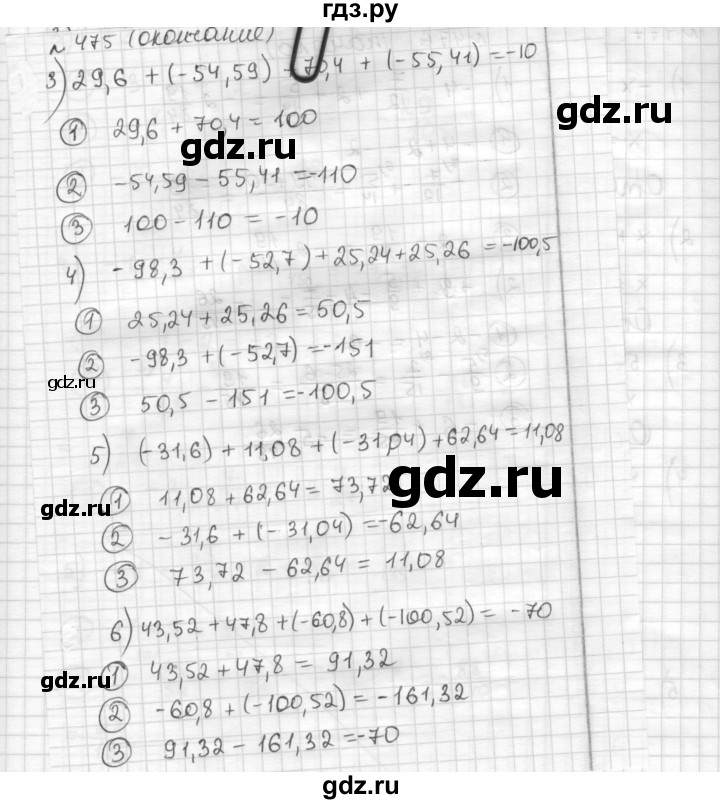 гдз.ру
№ 475 (окончание)
3) 29,6 + (-54,59) + 70,4 + (-55,41) = -10
① 29,6 + 70,4 = 100
gdz.ru
gdz.ru
② -54,59 - 55,41 = -110
③ 100 - 110 = -10
4) -98,3 + (-52,7) + 25,24 + 25,26 = -100,5
① 25,24 + 25,26 = 50,5
② -98,3 + (-52,7) = -151
gdz.ru
gdz.ru
③ 50,5 - 151 = -100,5
5) (-31,6) + 11,08 + (-31,04) + 62,64 = 11,08
gdz.ru
① 11,08 + 62,64 = 73,72
gdz.ru
② -31,6 + (-31,04) = -62,64
③ 73,72 - 62,64 = 11,08
6) 43,52 + 47,8 + (-60,8) + (-100,52) = -70
① 43,52 + 47,8 = 91,32
gdz.ru
gdz.ru
② -60,8 + (-100,52) = -161,32
③ 91,32 - 161,32 = -70
gdz.ru